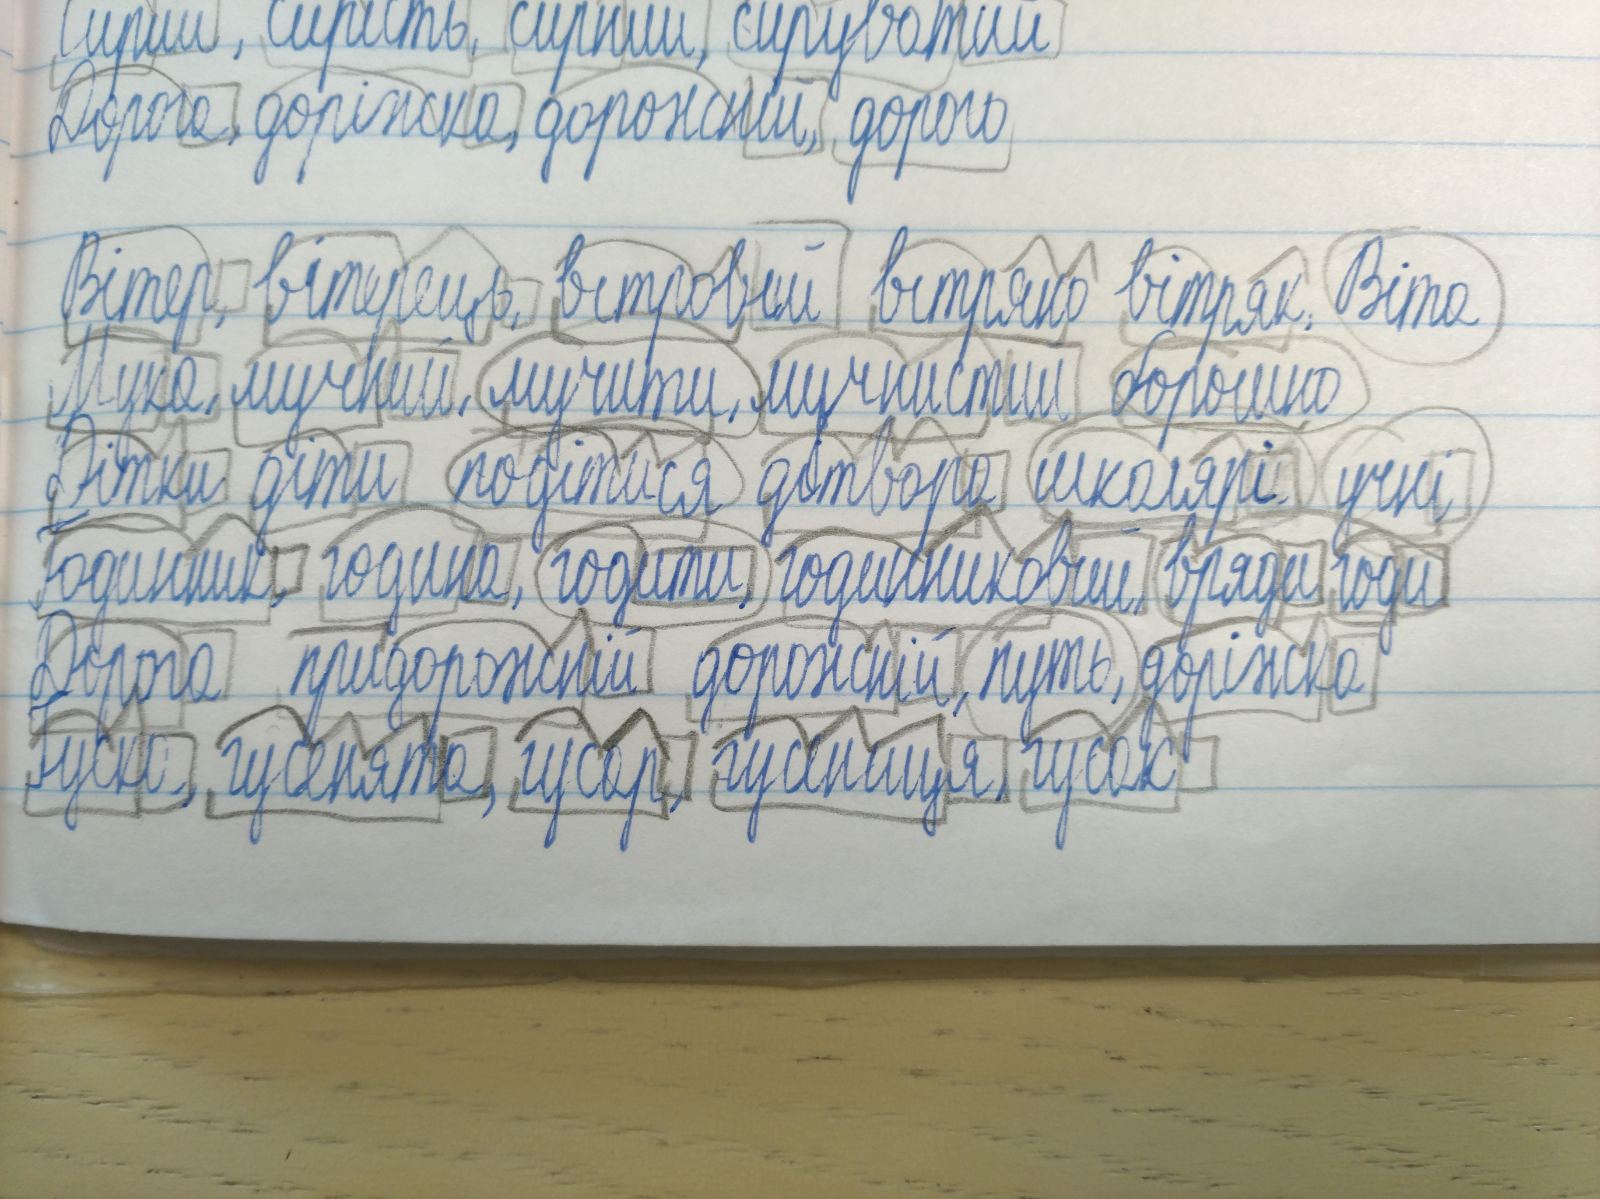 Сирий, сирість, сирний, сируватий
Дорога, доріжка, дорожній, дорого
Вітер, вітерець, вітровий вітряко вітряк, Віта
Мука, мучний, мучити, мучнистий борошно
Дітки діти подітися дітвора школярі учні
Годинник, година, годити, годинниковий, вряди годи
Дорога придорожній дорожній, путь, доріжка
Гуска, гусенята, гусар, гусениця, гусак